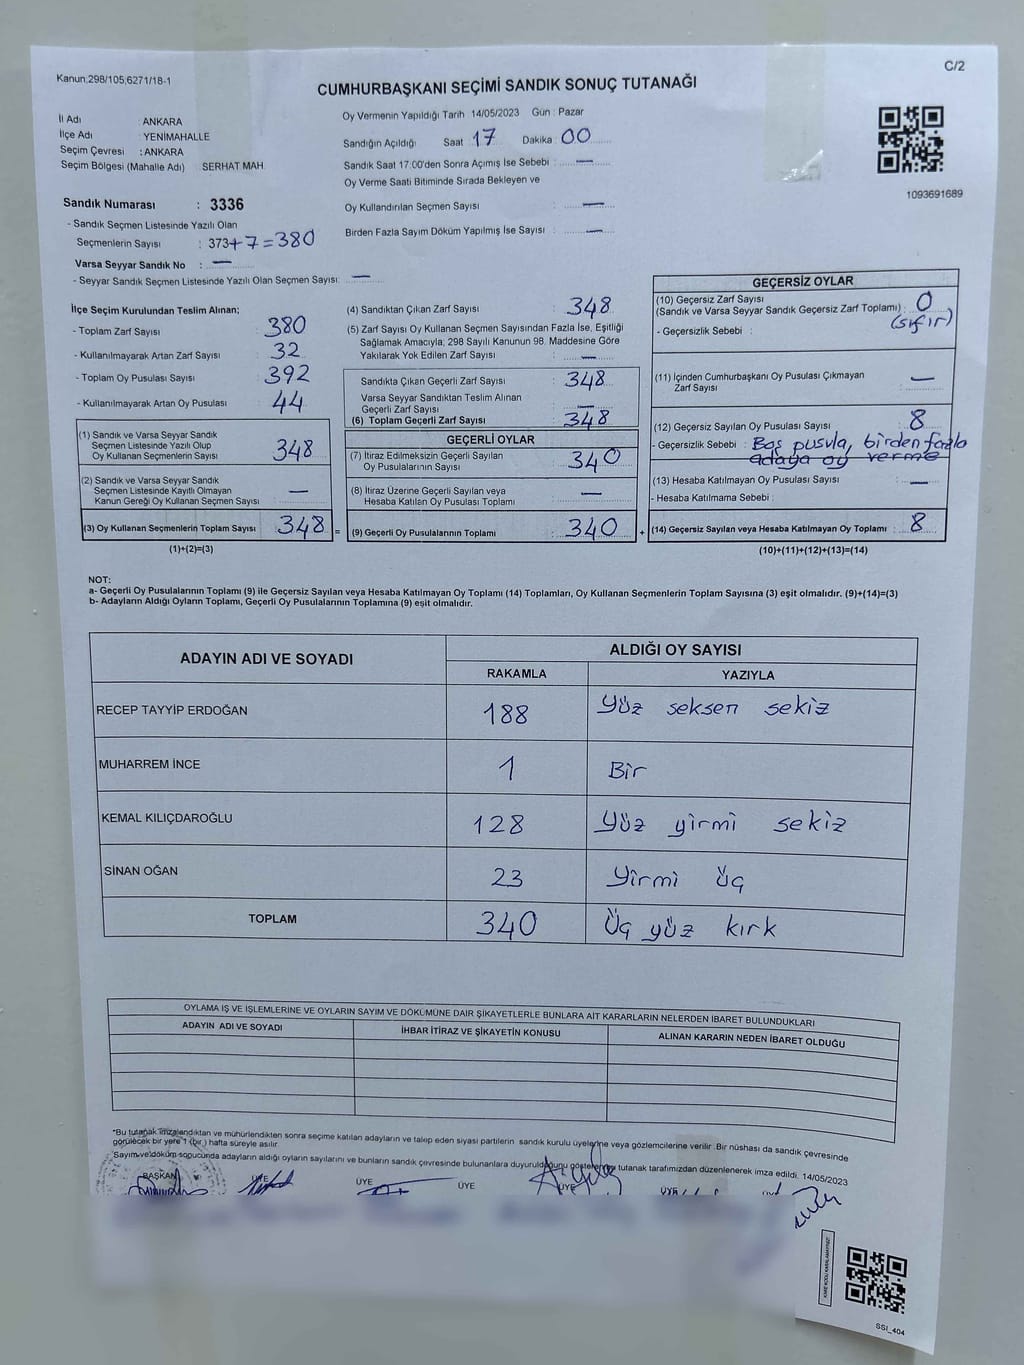 Kanun;298/105;6271/18-1
C/2
CUMHURBAŞKANI SEÇİMİ SANDIK SONUÇ TUTANAĞI
İl Adı : ANKARA
İlçe Adı : YENİMAHALLE
Seçim Çevresi : ANKARA
Seçim Bölgesi (Mahalle Adı) SERHAT MAH
Oy Vermenin Yapıldığı Tarih 14/05/2023 Gün : Pazar
Sandığın Açıldığı Saat 17 Dakika : 00
Sandık Saat 17:00'den Sonra Açımış İse Sebebi : —
Oy Verme Saati Bitiminde Sırada Bekleyen ve
Oy Kullandırılan Seçmen Sayısı : —
Birden Fazla Sayım Döküm Yapılmış İse Sayısı : —
1093691689
Sandık Numarası : 3336
- Sandık Seçmen Listesinde Yazılı Olan
Seçmenlerin Sayısı : 373+7=380
Varsa Seyyar Sandık No : —
- Seyyar Sandık Seçmen Listesinde Yazılı Olan Seçmen Sayısı: —
İlçe Seçim Kurulundan Teslim Alınan;
- Toplam Zarf Sayısı : 380
- Kullanılmayarak Artan Zarf Sayısı : 32
- Toplam Oy Pusulası Sayısı : 392
- Kullanılmayarak Artan Oy Pusulası : 44
(1) Sandık ve Varsa Seyyar Sandık
Seçmen Listesinde Yazılı Olup
Oy Kullanan Seçmenlerin Sayısı : 348
(2) Sandık ve Varsa Seyyar Sandık
Seçmen Listesinde Kayıtlı Olmayan
Kanun Gereği Oy Kullanan Seçmen Sayısı : —
(3) Oy Kullanan Seçmenlerin Toplam Sayısı : 348 =
(1)+(2)=(3)
(4) Sandıktan Çıkan Zarf Sayısı : 348
(5) Zarf Sayısı Oy Kullanan Seçmen Sayısından Fazla İse, Eşitliği
Sağlamak Amacıyla; 298 Sayılı Kanunun 98. Maddesine Göre
Yakılarak Yok Edilen Zarf Sayısı : —
Sandıkta Çıkan Geçerli Zarf Sayısı : 348
Varsa Seyyar Sandıktan Teslim Alınan
Geçerli Zarf Sayısı : —
(6) Toplam Geçerli Zarf Sayısı : 348
GEÇERLİ OYLAR
(7) İtiraz Edilmeksizin Geçerli Sayılan
Oy Pusulalarının Sayısı : 340
(8) İtiraz Üzerine Geçerli Sayılan veya
Hesaba Katılan Oy Pusulası Toplamı : —
(9) Geçerli Oy Pusulalarının Toplamı : 340 +
GEÇERSİZ OYLAR
(10) Geçersiz Zarf Sayısı
(Sandık ve Varsa Seyyar Sandık Geçersiz Zarf Toplamı) : 0
- Geçersizlik Sebebi : (sıfır)
(11) İçinden Cumhurbaşkanı Oy Pusulası Çıkmayan
Zarf Sayısı : —
(12) Geçersiz Sayılan Oy Pusulası Sayısı : 8
- Geçersizlik Sebebi : Boş pusula, birden fazla
adaya oy verme
(13) Hesaba Katılmayan Oy Pusulası Sayısı : —
- Hesaba Katılmama Sebebi :
(14) Geçersiz Sayılan veya Hesaba Katılmayan Oy Toplamı : 8
(10)+(11)+(12)+(13)=(14)
NOT:
a- Geçerli Oy Pusulalarının Toplamı (9) ile Geçersiz Sayılan veya Hesaba Katılmayan Oy Toplamı (14) Toplamları, Oy Kullanan Seçmenlerin Toplam Sayısına (3) eşit olmalıdır. (9)+(14)=(3)
b- Adayların Aldığı Oyların Toplamı, Geçerli Oy Pusulalarının Toplamına (9) eşit olmalıdır.
ADAYIN ADI VE SOYADI ALDIĞI OY SAYISI
RAKAMLA YAZIYLA
RECEP TAYYİP ERDOĞAN 188 Yüz seksen sekiz
MUHARREM İNCE 1 Bir
KEMAL KILIÇDAROĞLU 128 Yüz yirmi sekiz
SİNAN OĞAN 23 Yirmi üç
TOPLAM 340 Üç yüz kırk
OYLAMA İŞ VE İŞLEMLERİNE VE OYLARIN SAYIM VE DÖKÜMÜNE DAİR ŞİKAYETLERLE BUNLARA AİT KARARLARIN NELERDEN İBARET BULUNDUKLARI
ADAYIN ADI VE SOYADI İHBAR İTİRAZ VE ŞİKAYETİN KONUSU ALINAN KARARIN NEDEN İBARET OLDUĞU
*Bu tutanak imzalandıktan ve mühürlendikten sonra seçime katılan adayların ve talep eden siyasi partilerin sandık kurulu üyelerine veya gözlemcilerine verilir. Bir nüshası da sandık çevresinde
görülecek bir yere 1 (bir ) hafta süreyle asılır.
Sayım ve döküm sonucunda adayların aldığı oyların sayılarını ve bunların sandık çevresinde bulunanlara duyurulduğunu gösteren iş bu tutanak tarafımızdan düzenlenerek imza edildi. 14/05/2023
BAŞKAN ÜYE ÜYE ÜYE ÜYE ÜYE
SSI_404